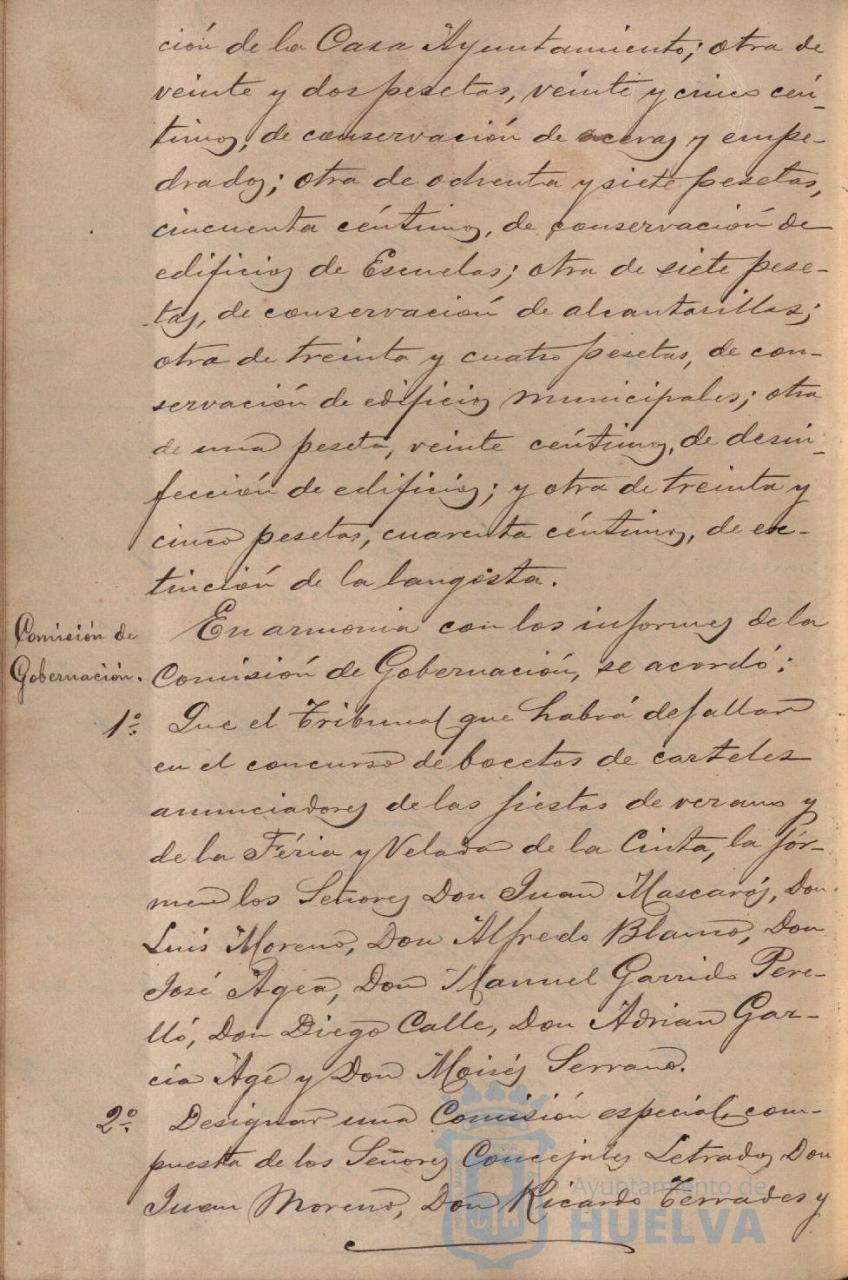 ción de la Casa Ayuntamiento; otra de
veinte y dos pesetas, veinte y cinco cén-
timos, de conservación de aceras y empe-
drados; otra de ochenta y siete pesetas,
cincuenta céntimos, de conservación de
edificios de Escuelas; otra de siete pese-
tas, de conservación de alcantarillas;
otra de treinta y cuatro pesetas, de con-
servación de edificios municipales; otra
de una peseta, veinte céntimos, de desin-
fección de edificios; y otra de treinta y
cinco pesetas, cuarenta céntimos, de ex-
tinción de la langosta.
Comisión de
Gobernación.
En armonia con los informes de la
Comisión de Gobernación, se acordó:
1º Que el Tribunal que habrá de fallar
en el concurso de bocetos de carteles
anunciadores de las fiestas de verano y
de la Féria y Velada de la Cinta, la fór-
men los Señores Don Juan Mascarós, Don
Luis Moreno, Don Alfredo Blanco, Don
José Agea, Don Manuel Garrido Pere-
lló, Don Diego Calle, Don Adrian Gar-
cia Age y Don Moisés Serrano.
2º Designar una Comisión especial, com-
puesta de los Señores Concejales Letrados Don
Juan Moreno, Don Ricardo Terrades y
Ayuntamiento de
HUELVA